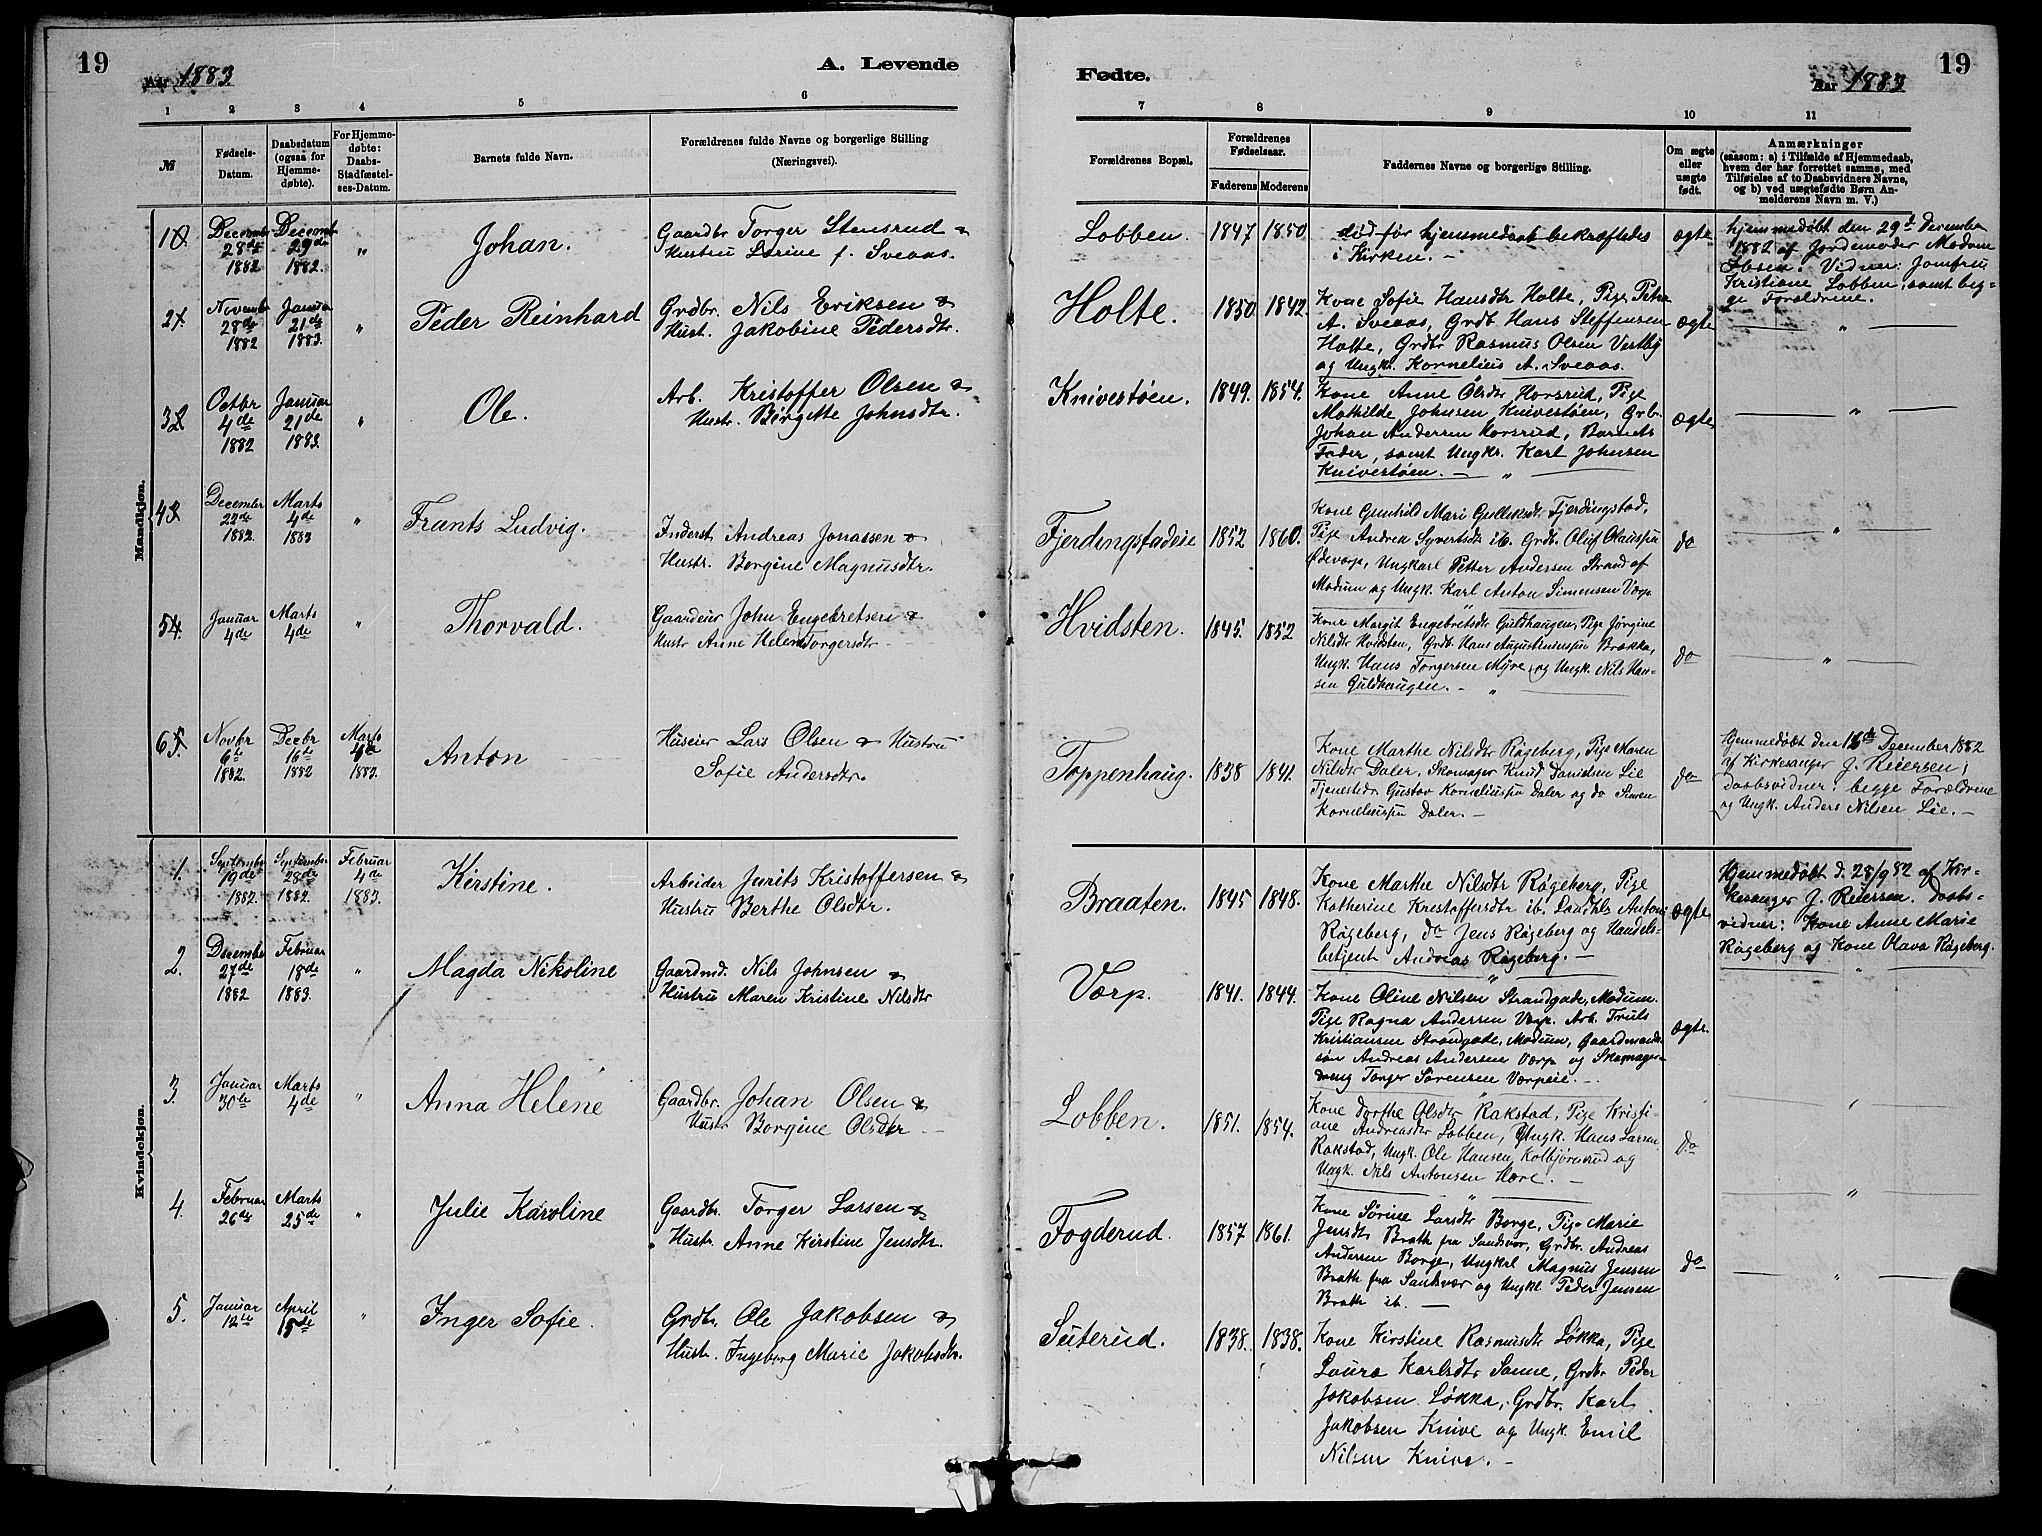 19
Aar 1883.
A. Levende
1 2 3 4 5 6
№
Fødsels-
Datum.
Daabsdatum
(ogsaa for
Hjemme-
døbte).
For Hjemme-
døbte:
Daabs-
Stadfæstel-
ses-Datum.
Barnets fulde Navn.
Forældrenes fulde Navne og borgerlige Stilling
(Næringsvei).
Mandkjøn.
1
Decembr
28de
1882
Decembr
29de
1882.
"
Johan.
Gaardbr Torger Stensrud &
Hustru Lorine f. Sveaas.
2
Novembr
28de
1882
Januar
21de
1883.
"
Peder Reinhard
Grdbr. Nils Eriksen &
Hust. Jakobine Pedersdtr.
3
Octbr
4de
1882
Januar
21de
1883.
"
Ole.
Arb. Kristoffer Olsen &
Hustr. Børgitte Johnsdtr.
4
December
22de
1882.
Marts
4de
1883
"
Frants Ludvig.
Inderst. Andreas Jonassen &
Hustr. Borgine Magnusdtr.
5
Januar
4de
Marts
4de
"
Thorvald.
Gaardeier John Engebretsen &
Hustr Anne Helene Torgersdtr
6
Novbr
6te
1882.
Decbr
16de
1882
Marts
4de
1883.
Anton
Huseier Lars Olsen & Hustru
Sofie Andersdtr.
Kvindekjøn.
1.
September
19de
1882.
September
28de
1882.
Februar
4de
1883.
Kirstine.
Arbeider Jurits Kristoffersen &
Hustru Berthe Olsdtr.
2.
December
27de
1882
Februar
18de
1883.
"
Magda Nikoline
Gaardmd. Nils Johnsen &
Hustru Maren Kristine Nilsdtr
3.
Januar
30te
Marts
4de
"
Anna Helene
Gaardbr. Johan Olsen &
Hustr Borgine Olsdtr
4.
Februar
26de
Marts
25de
"
Julie Karoline
Gaardbr. Torger Larsen &
Hustr. Anne Kirstine Jensdtr.
5.
Januar
12te
April
15de
"
Inger Sofie.
Grdbr. Ole Jakobsen &
Hustr. Ingeborg Marie Jakobsdtr.
Fødte.
Aar 1883
19
7 8 9 10 11
Forældrenes Bopæl.
Forældrenes
Fødselsaar.
Faderens Moderens
Faddernes Navne og borgerlige Stilling.
Om ægte
eller
uægte
født.
Anmærkninger
(saasom: a) i Tilfælde af Hjemmedaab,
hvem der har forrettet samme, med
Tilføielse af to Daabsvidners Navne,
og b) ved uægtefødte Børn An-
melderens Navn m. V.)
Lobben. 1847 1850
død før hjemmedaab bekræftedes
i Kirken. —
ægte
hjemmedøbt den 29de December
1882 af Jordemoder Madam
Ibsen. Vidner: Jomfru
Kristiane Lobben, samt beg-
ge Forældrene.
Holte. 1850. 1842.
Kone Sofie Hansdtr Holte, Pige Petra
A. Sveaas, Grdb. Hans Steffensen
Holte, Grdbr Rasmus Olsen Vestby
og Ungkr. Kornelius A. Sveaas.
ægte
"
Knivestøen. 1849. 1854.
Kone Anne Olsdtr Horsrud, Pige
Mathilde Johnsen Knivestøen, Grbr.
Johan Andersen Horsrud, Barnets
Fader, samt Ungkr. Karl Johnsen
Knivestøen. — "
ægte
"
Fjerdingstadeie 1852 1860.
Kone Gunhild Mari Gulliksdtr Fjerdingstad,
Pige Andrea Syvertsdtr ib. Grdb. Oluf Olaussen
Ødevorp, Ungkarl Petter Andersen Strand af
Modum og Ungk. Karl Anton Simensen Vorp
do
"
Hvidsten. 1845. 1852
Kone Margit Engebretsdtr Guldhaugen, Pige Jørgine
Nilsdtr Hvidsten, Grdb. Hans Augustinussen Brakka,
Ungk. Hans Torgersen Myre og Ungk. Nils Han-
sen Guldhaugen. — "
do
"
Toppenhaug. 1838 1841.
Kone Marthe Nilsdtr Røgeberg, Pige Maren
Nilsdtr Daler, Skomager Knud Danielsen Lie
Tjenestedr. Gustav Korneliussen Daler og do Simen
Korneliussen Daler. —
do
Hjemmedøbt den 16de December 1882
af Kirkesanger J. Reiersen;
Daabsvidner: begge Forældrene
og Ungk. Anders Nilsen Lie. —
Braaten. 1845 1848.
Kone Marthe Nilsdtr Røgeberg, Pige
Katherine Krestoffersdtr ib. Anton
Røgeberg, do Jens Røgeberg og Handels-
betjent Andreas Røgeberg. —
ægte
Hjemmedøbt d. 28/9 82 af Kir-
kesanger J. Reiersen. Daabs-
vidner: Kone Anne Marie
Røgeberg og Kone Olava Røgeberg.
Vorp. 1841. 1844.
Kone Oline Nilsen Strandgade, Modum.
Pige Ragna Andersen Vorp. Arb. Truls
Kristiansen Strandgade, Modum, Gaardmands-
søn Andreas Andersen Vorp og Skomager-
dreng Torger Sørensen Vorpeie. —
ægte.
"
Lobben. 1851. 1854.
Kone Dorthe Olsdtr Rakstad, Pige Kristi-
ane Andreasdtr Lobben, Ungk. Hans Larsen
Rakstad, Ungk. Ole Hansen Kolbjørnsrud og
Ungk. Nils Antonsen Hære. —
do
"
Fogderud. 1857 1861.
Kone Sørine Larsdtr Borge, Pige Marie
Jensdtr Brath fra Sandsvær, Grdbr. Andreas
Andersen Borge, Ungkrl Magnus Jensen
Brath fra Sandsvær og Ungkl. Peder Jensen
Brath ib. —
do
"
Suterud. 1838. 1838.
Kone Kirstine Rasmusdtr Løkka, Pige
Laura Karlsdtr Sanne, Grdbr Peder
Jakobsen Løkka, Grdbr. Karl
Jakobsen Knive og Ungk. Emil
Nilsen Knive. —